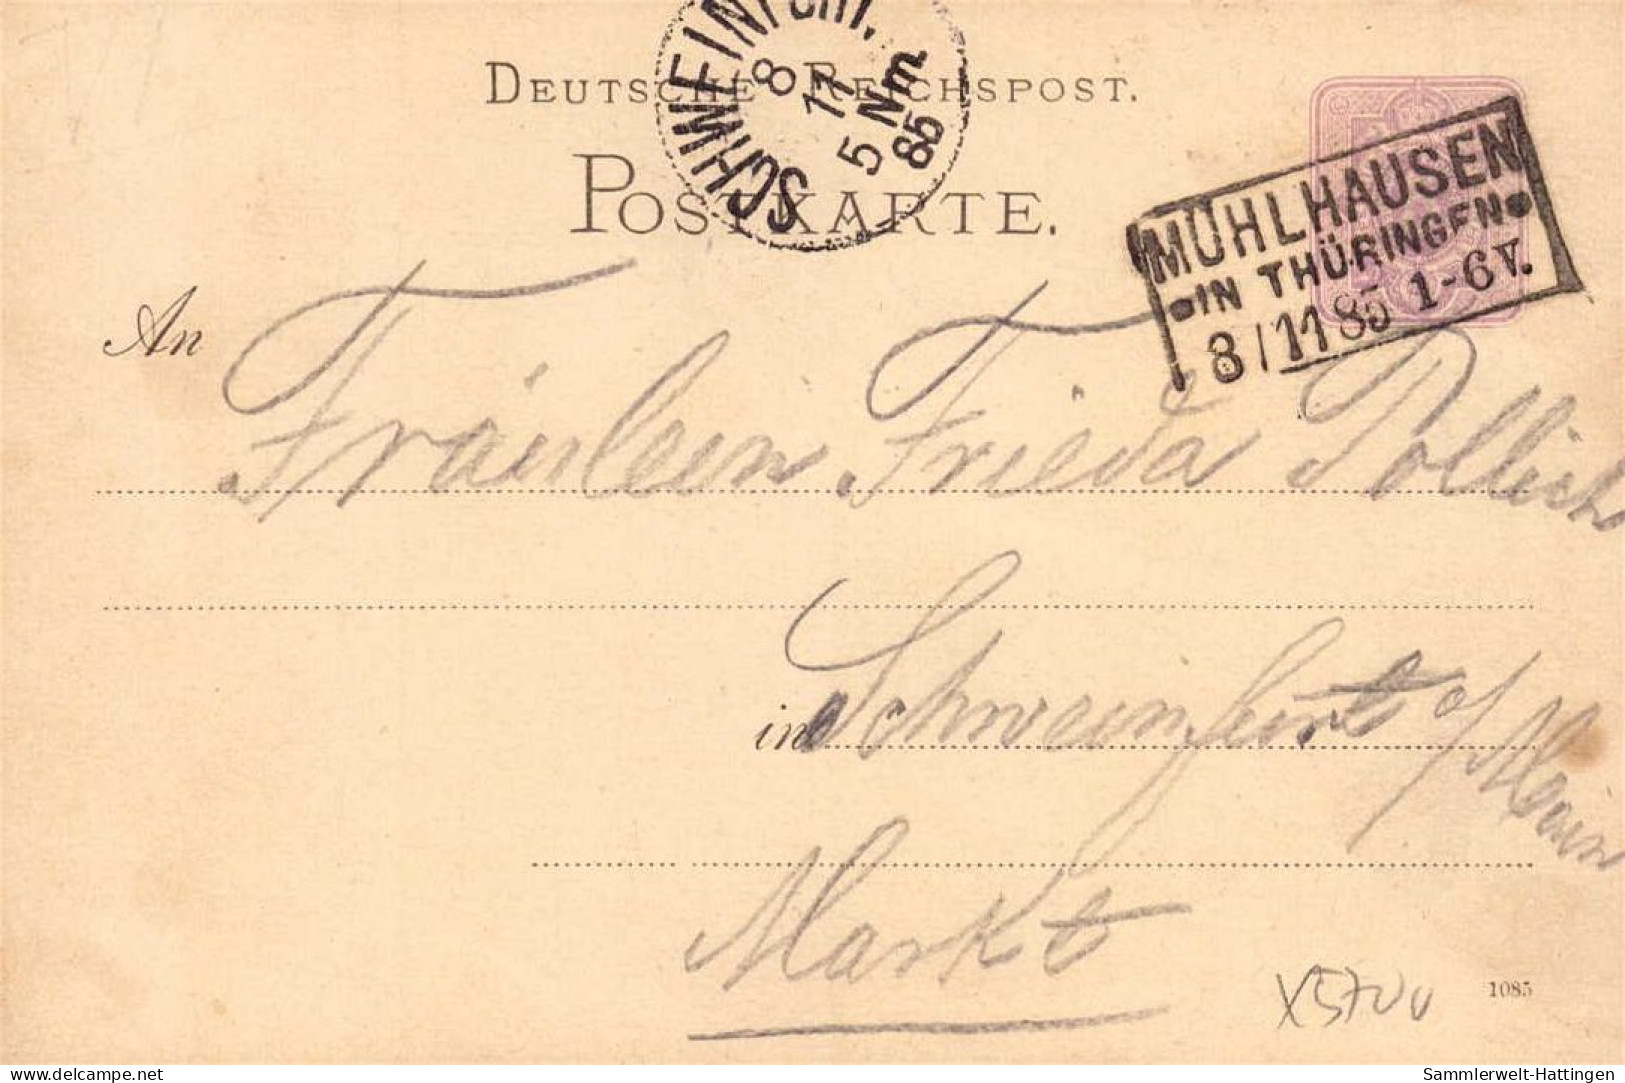 DEUTSCHE REICHSPOST.
POSTKARTE.
SCHWEINFURT.
8
11
5 Nm.
85
MÜHLHAUSEN
IN THÜRINGEN
8/11 85 1-6 V.
An
Fräulein Frieda Pollich
in Schweinfurt a/Main
Markt
1085
www.delcampe.net
Sammlerwelt-Hattingen